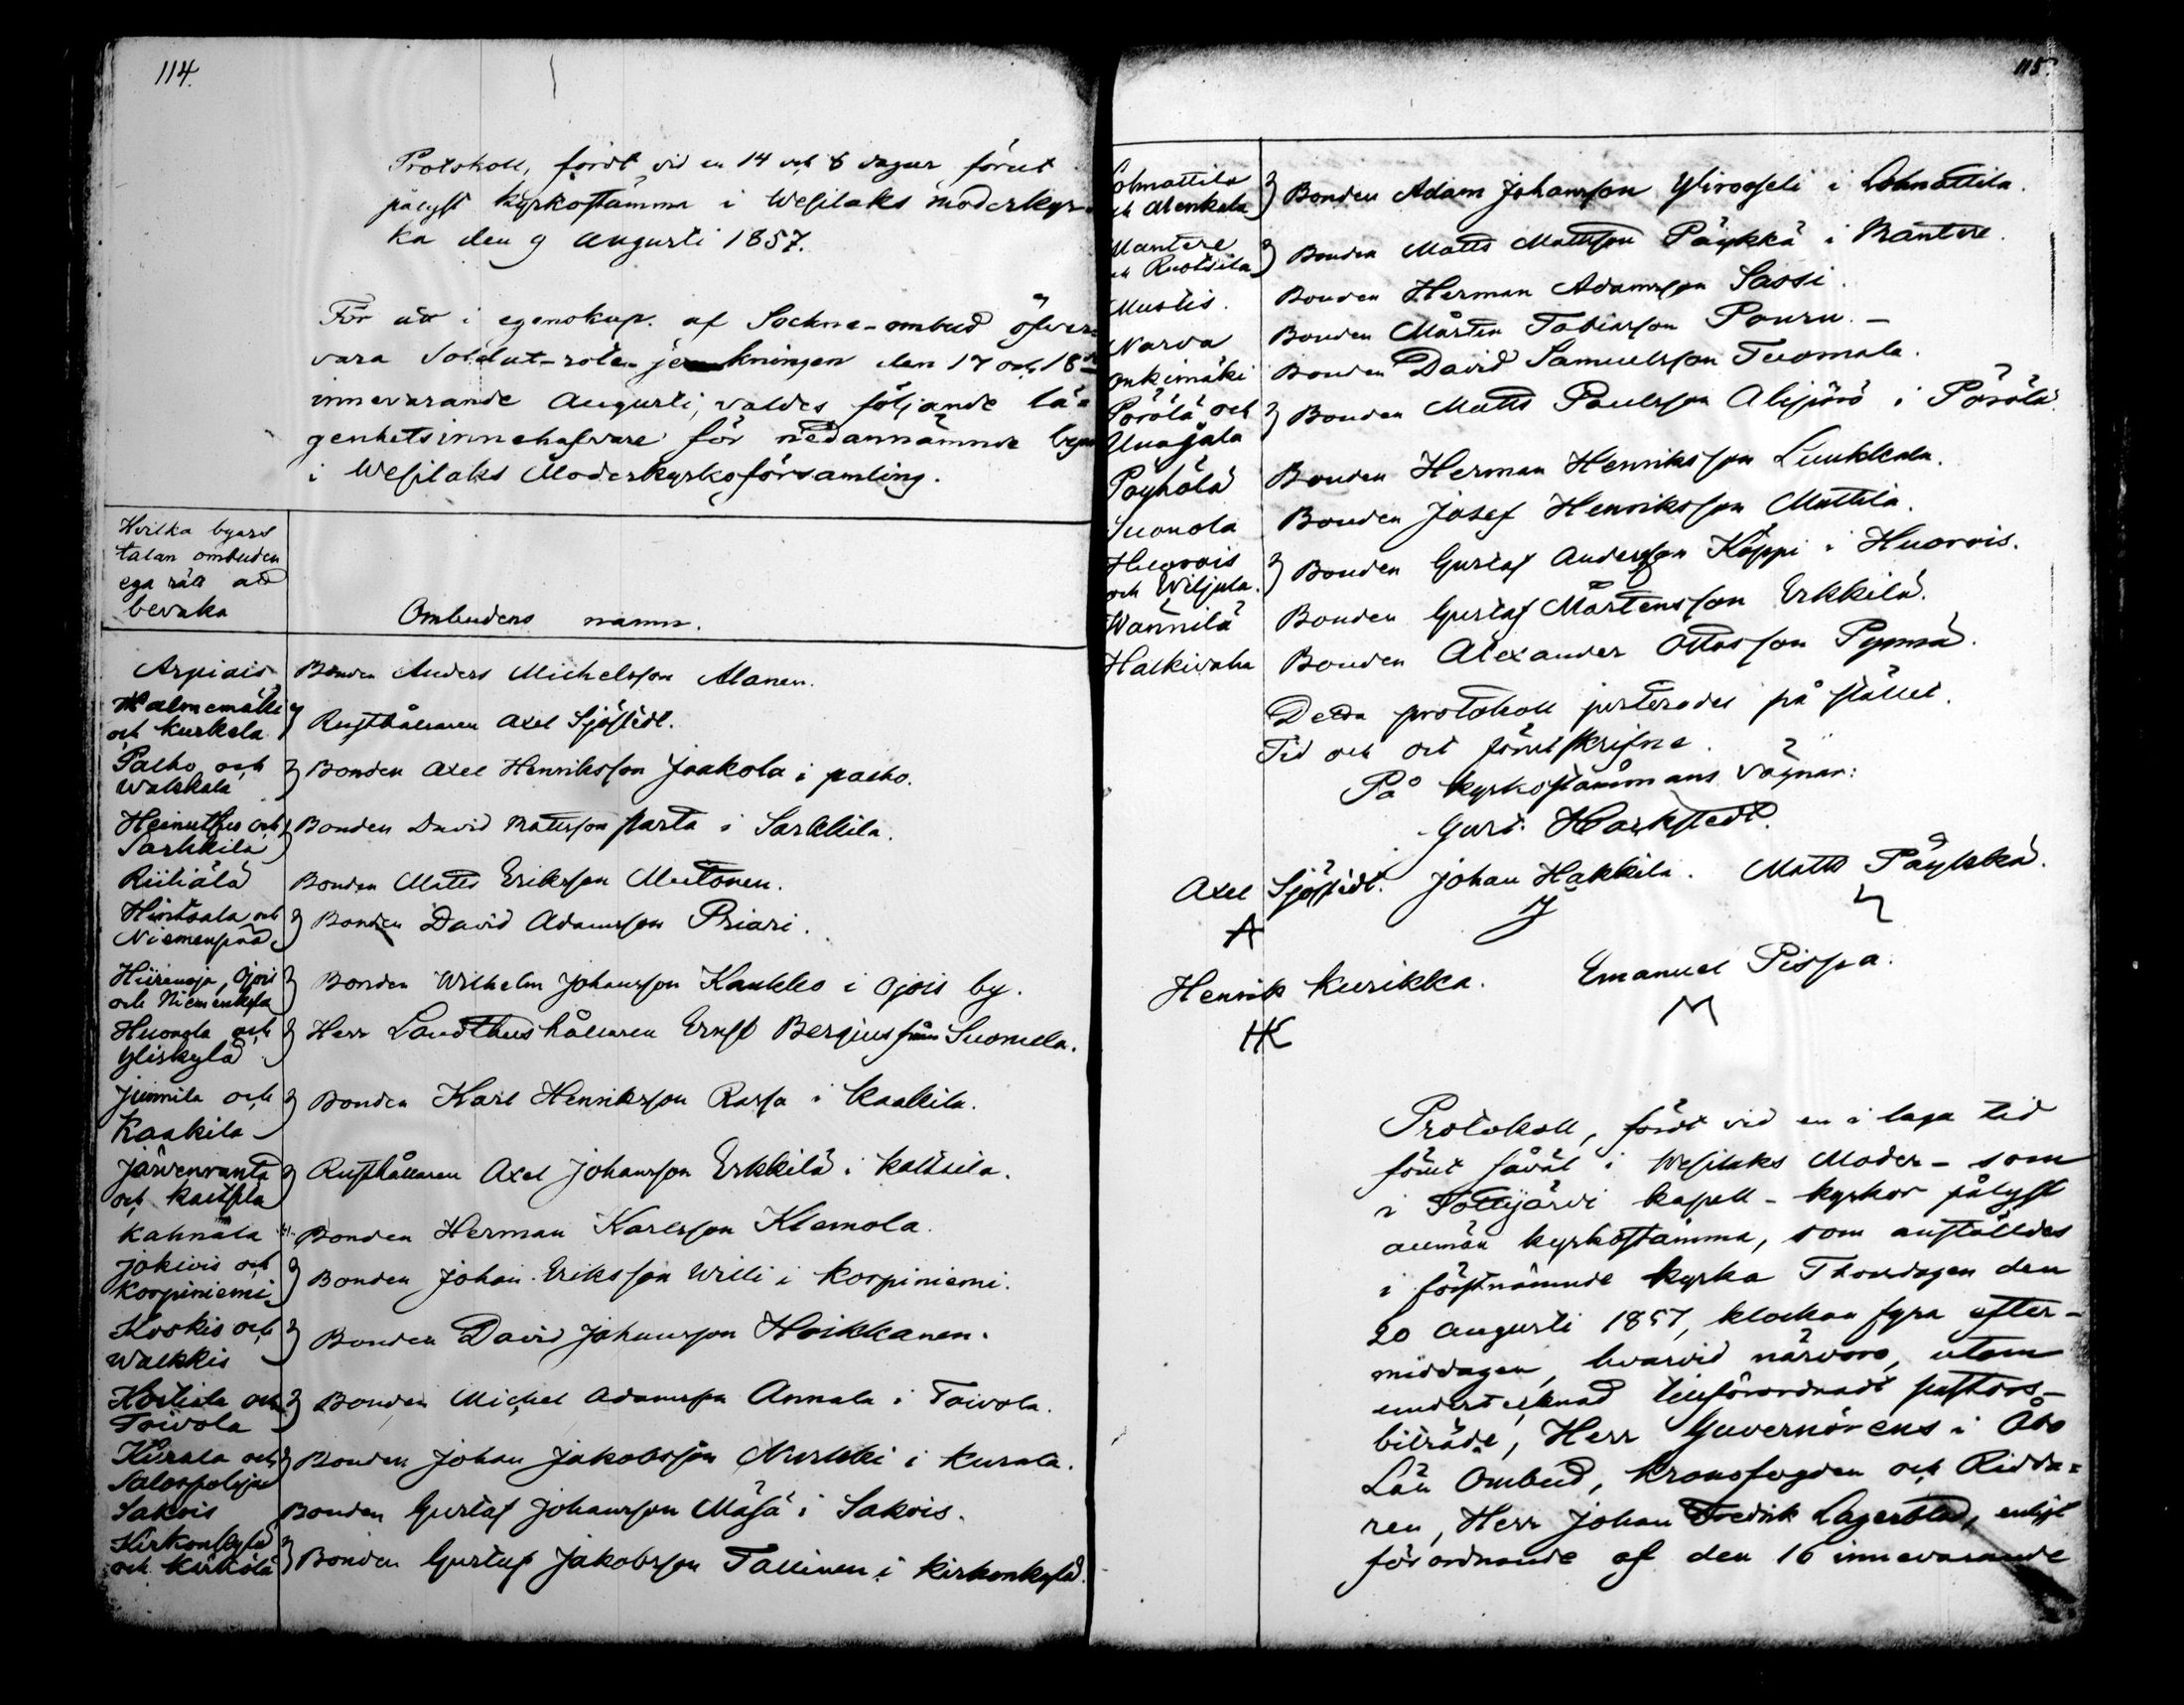 114.
Protokoll, fördt vid en 14 och 8 dagar förut
pålyst kyrkostämma i Wesilaks moderkyr-
ka den 9 Augusti 1857.
För att i egenskap af Sockne-ombud öfver-
vara Soldat-rote jemkningen den 17 och 18de
innevarande Augusti, valdes följande lä-
genhetsinnehafvare för nedannämnde byar
i Wesilaks Moderkyrkoförsamling.
Hvilka byars
talan ombuden
ega rätt att
bevaka
Ombudens namn.
Arpiais Bonden Anders Michelsson Alanen.
och Kurkela Rusthållaren Axel Sjöstedt.
Palho och
Walkkala Bonden Axel Henriksson Jaakola i palho.
Heinuthu och
Sarkkila Bonden David Mattsson parta i Sarkkila.
Riiliälä Bonden Matts Eriksson Mutonen.
Hintsala och
Niemenpää Bonden David Adamsson Priari.
Hiirenoja, Ojois
och Niemenkylä Bonden Wilhelm Johansson Kaukko i Ojois by.
och
Yliskylä Herr Landthushållaren Ernst Bergius från Suomela.
Junnila och
Kaakila Bonden Karl Henriksson Rassa i Kaakila.
Järvenranta
och Kaltsila Rusthållaren Axel Johansson Erkkilä i Kaltsila.
Kahnala Bonden Herman Karlsson Klemola.
Jokiois och
Korpiniemi Bonden Johan Eriksson Willi i Korpiniemi.
Koskis och
Walkkis Bonden David Johansson Hoikkanen.
och
Toivola Bonden Michel Adamsson Annala i Toivola.
Kurala och
Salospohja Bonden Johan Jakobsson Nurkki i Kurala.
Sakois Bonden Gustaf Johansson Mäsä i Sakois.
Kirkonkylä
och Kirkola Bonden Gustaf Jakobsson Tallinen i Kirkonkylä.
115.
Lohnattila
och Menkala Bonden Adam Johansson Yliroosseli i Lohnattila.
Mantere
och Ruotsila Bonden Matts Mattsson Päykkä i Mäntere.
Mustis. Bonden Herman Adamsson Sassi.
Narva Bonden Mårten Tobiasson Pouru. –
Onkimäki Bonden David Samuelsson Tuomala.
Pörölä och
Unajala Bonden Matts Paulsson Alipörö i Pörölä.
Pöyhölä Bonden Herman Henriksson Luukkala.
Suonola Bonden Josef Henriksson Mattila.
Huovois
och Wiljula. Bonden Gustaf Andersson Käppi i Huovois.
Wännilä Bonden Gustaf Mårtensson Erkkilä.
Halkivaha Bonden Alexander Ottosson Pynnä.
Detta protokoll justerades på stället.
Tid och ort förutskrifne.
På kyrkostämmans vägnar:
Gust. Harkstedt.
Axel Sjöstedt. Johan Hakkila. Matts Päykkä.
Henrik Kurikka. Emanuel Pispa.
Protokoll, fördt vid en i laga tid
förut såväl i Wesilaks Moder- som
i Tottijärvi kapell-kyrkor pålyst
allmän kyrkostämma, som anställdes
i förstnämnde kyrka Thorsdagen den
20 Augusti 1857, klockan fyra efter-
middagen, hvarvid närvoro, utom
undertecknad tillförordnadt pastors-
biträde, Herr Guvernörens i Åbo
Län Ombud, Kronofogden och Ridda-
ren, Herr Johan Fredrik Lagerblad, enligt
förordnande af den 16 innevarande